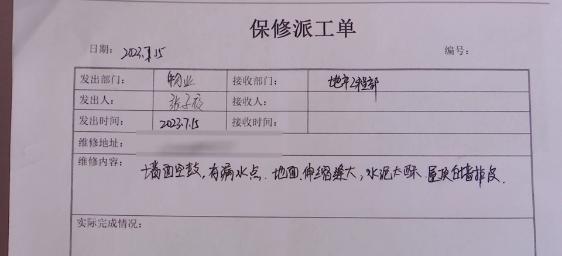 保修派工单
日期: 2023.7.15 编号:
发出部门: 物业 接收部门: 地产工程部
发出人: 接收人:
发出时间: 2023.7.15 接收时间:
维修地址:
维修内容: 墙面空鼓,有漏水点.地面.伸缩缝大,水泥太 屋顶白墙掉皮.
实际完成情况: